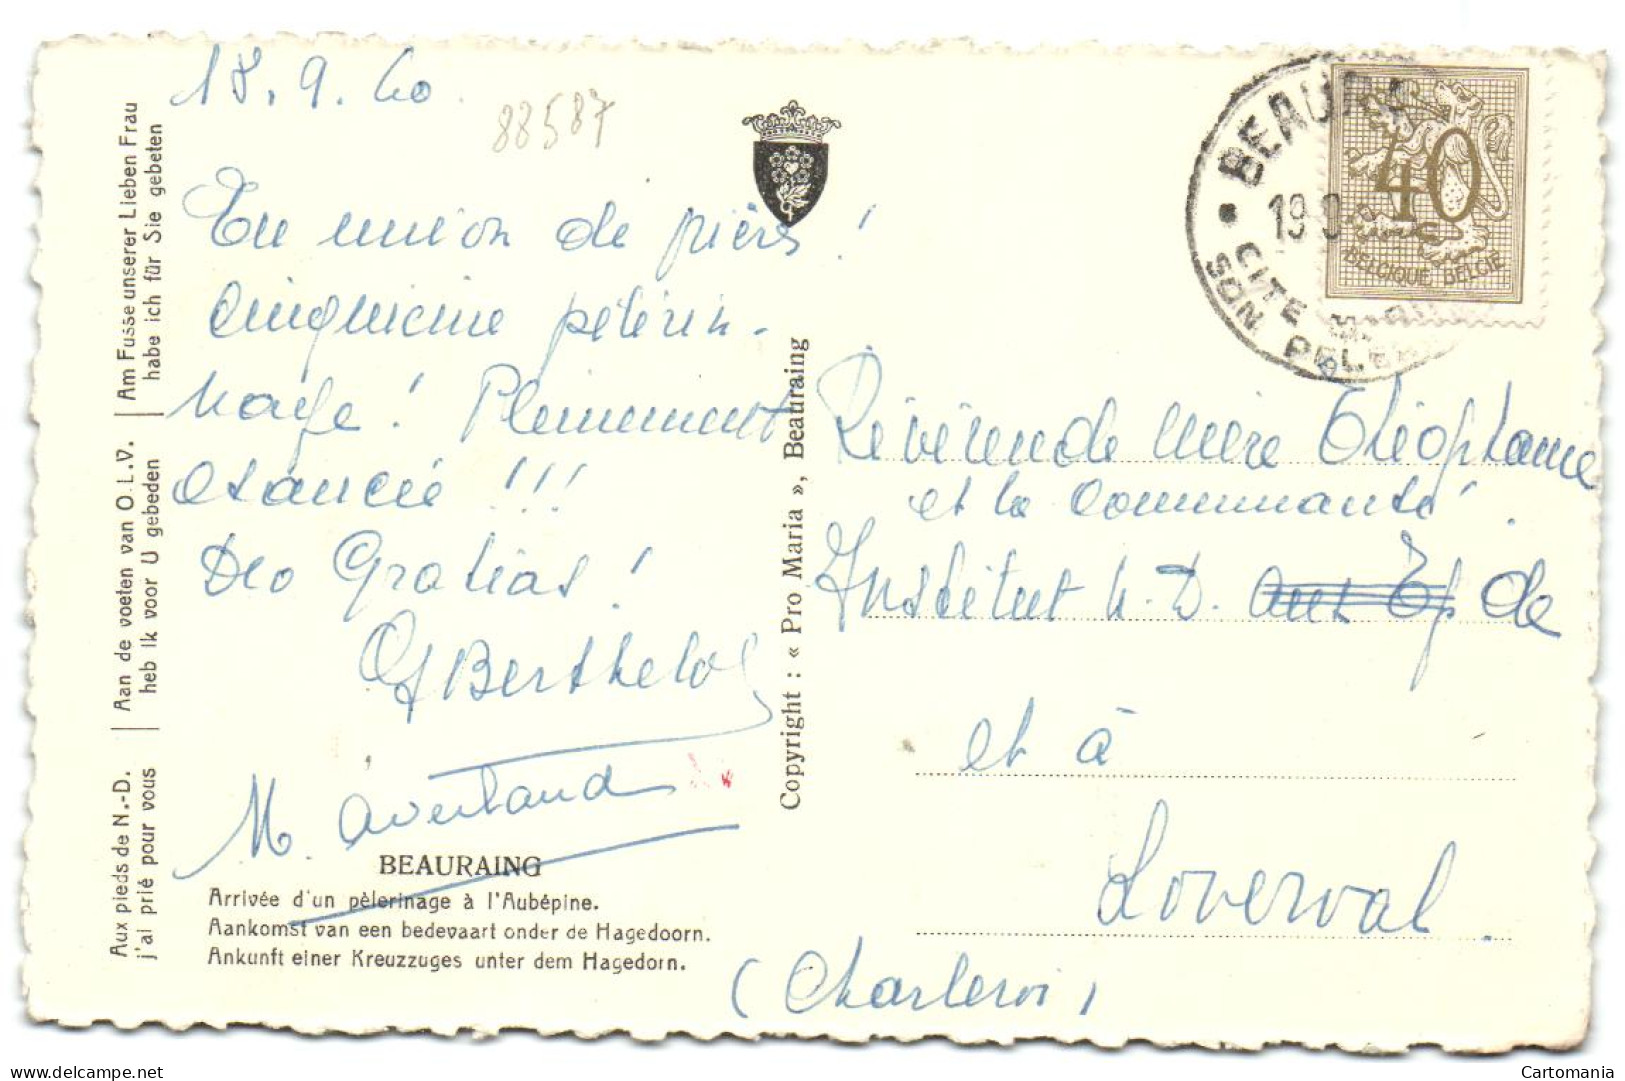 18.9.60
88587
En union de prières !
Cinquième pélerin-
nage ! Pleinement
exaucée !!!
Deo Gratias !
Berthelot
M. Overtand
BEAURAING
Arrivée d'un pèlerinage à l'Aubépine.
Aankomst van een bedevaart onder de Hagedoorn.
Ankunft einer Kreuzzuges unter dem Hagedorn.
Aux pieds de N.-D.
j'ai prié pour vous
Aan de voeten van O.L.V.
heb Ik voor U gebeden
Am Fusse unserer Lieben Frau
habe ich für Sie gebeten
Copyright : « Pro Maria », Beauraing
BEAURA
19 9
CITE MARIALE
SON PELER
40
BELGIQUE BELGIË
Révérende Mère Théophanie
et la Communauté
Institut N.D. de
et à
Loverval.
(Charleroi)
delcampe.net
Cartomania